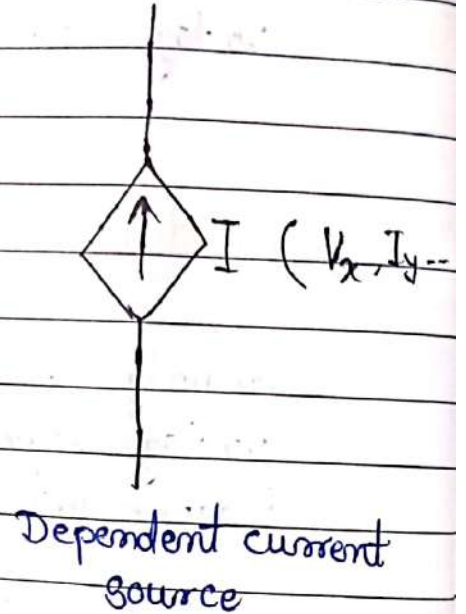 I ( Vx, Iy--
Dependent current
source